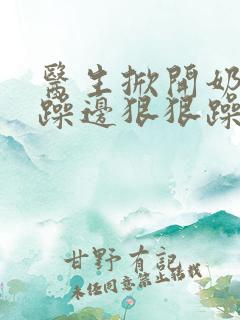 醫生掀開奶
躁邊狠狠躁
甘野有記
未经同意禁止转载